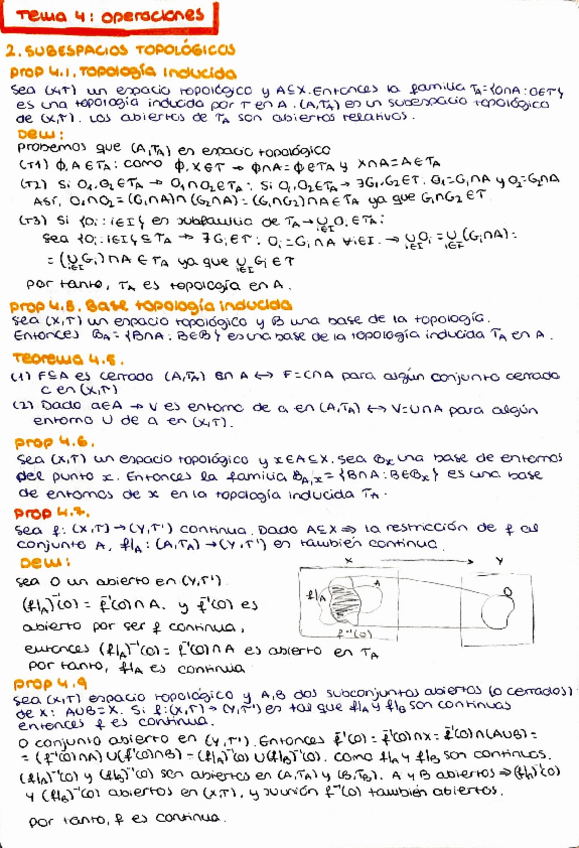 Tema 4: operaciones
2. SUBESPACIOS TOPOLÓGICOS
Prop 4.1. Topología inducida
Sea (X,T) un espacio topológico y A⊆X. Entonces la familia T_A={O∩A : O∈T}
es una topología inducida por T en A. (A,T_A) es un subespacio topológico
de (X,T). Los abiertos de T_A son abiertos relativos.
Dem:
Probemos que (A,T_A) es espacio topológico
(T1) ϕ,A∈T_A: como ϕ,X∈T → ϕ∩A=ϕ∈T_A y X∩A=A∈T_A
(T2) Si O₁,O₂∈T_A → O₁∩O₂∈T_A: Si O₁,O₂∈T_A → ∃G₁,G₂∈T. O₁=G₁∩A y O₂=G₂∩A
Así, O₁∩O₂=(G₁∩A)∩(G₂∩A)=(G₁∩G₂)∩A∈T_A ya que G₁∩G₂∈T
(T3) Si {Oᵢ : i∈I} es subfamilia de T_A → ∪_{i∈I} Oᵢ∈T_A:
Sea {Oᵢ : i∈I}⊆T_A → ∃Gᵢ∈T: Oᵢ=Gᵢ∩A ∀i∈I. → ∪_{i∈I} Oᵢ=∪_{i∈I}(Gᵢ∩A)=
=(∪_{i∈I} Gᵢ)∩A∈T_A ya que ∪_{i∈I} Gᵢ∈T
Por tanto, T_A es topología en A.
Prop 4.3. Base topología inducida
Sea (X,T) un espacio topológico y B una base de la topología.
Entonces B_A={B∩A : B∈B} es una base de la topología inducida T_A en A.
Teorema 4.5.
(1) F⊆A es cerrado (A,T_A) en A ↔ F=C∩A para algún conjunto cerrado
C en (X,T)
(2) Dado a∈A → V es entorno de a en (A,T_A) ↔ V=U∩A para algún
entorno U de a en (X,T).
Prop 4.6.
Sea (X,T) un espacio topológico y x∈A⊆X. Sea B_x una base de entornos
del punto x. Entonces la familia B_{A,x}={B∩A : B∈B_x} es una base
de entornos de x en la topología inducida T_A.
Prop 4.7.
Sea f: (X,T)→(Y,T') continua. Dado A⊆X ⇒ la restricción de f al
conjunto A, f|_A : (A,T_A)→(Y,T') es también continua.
Dem:
Sea O un abierto en (Y,T').
(f|_A)⁻¹(O)=f⁻¹(O)∩A. y f⁻¹(O) es
abierto por ser f continua,
entonces (f|_A)⁻¹(O)=f⁻¹(O)∩A es abierto en T_A
Por tanto, f|_A es continua
X Y
f|_A A O
f⁻¹(O)
Prop 4.9
Sea (X,T) espacio topológico y A,B dos subconjuntos abiertos (o cerrados)
de X: A∪B=X. Si f: (X,T)→(Y,T') es tal que f|_A y f|_B son continuas
entonces f es continua.
O conjunto abierto en (Y,T'). Entonces f⁻¹(O)=f⁻¹(O)∩X=f⁻¹(O)∩(A∪B)=
=(f⁻¹(O)∩A)∪(f⁻¹(O)∩B)=(f|_A)⁻¹(O)∪(f|_B)⁻¹(O). Como f|_A y f|_B son continuas,
(f|_A)⁻¹(O) y (f|_B)⁻¹(O) son abiertos en (A,T_A) y (B,T_B). A y B abiertos ⇒ (f|_A)⁻¹(O)
y (f|_B)⁻¹(O) abiertos en (X,T), y su unión f⁻¹(O) también abiertos.
Por tanto, f es continua.